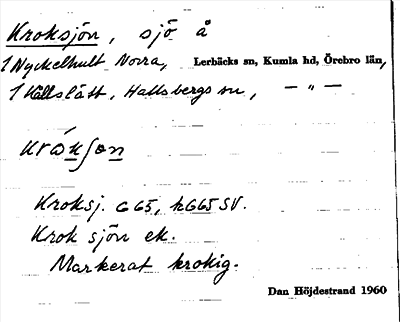 Kroksjön, sjö å
1 Nyckelhult Norra, Lerbäcks sn, Kumla hd, Örebro län,
1 Källslätt, Hallsbergs sn, — „ —
Kroksj. G65, hG65SV.
Krok sjön ek.
Markerat krokig.
Dan Höjdestrand 1960